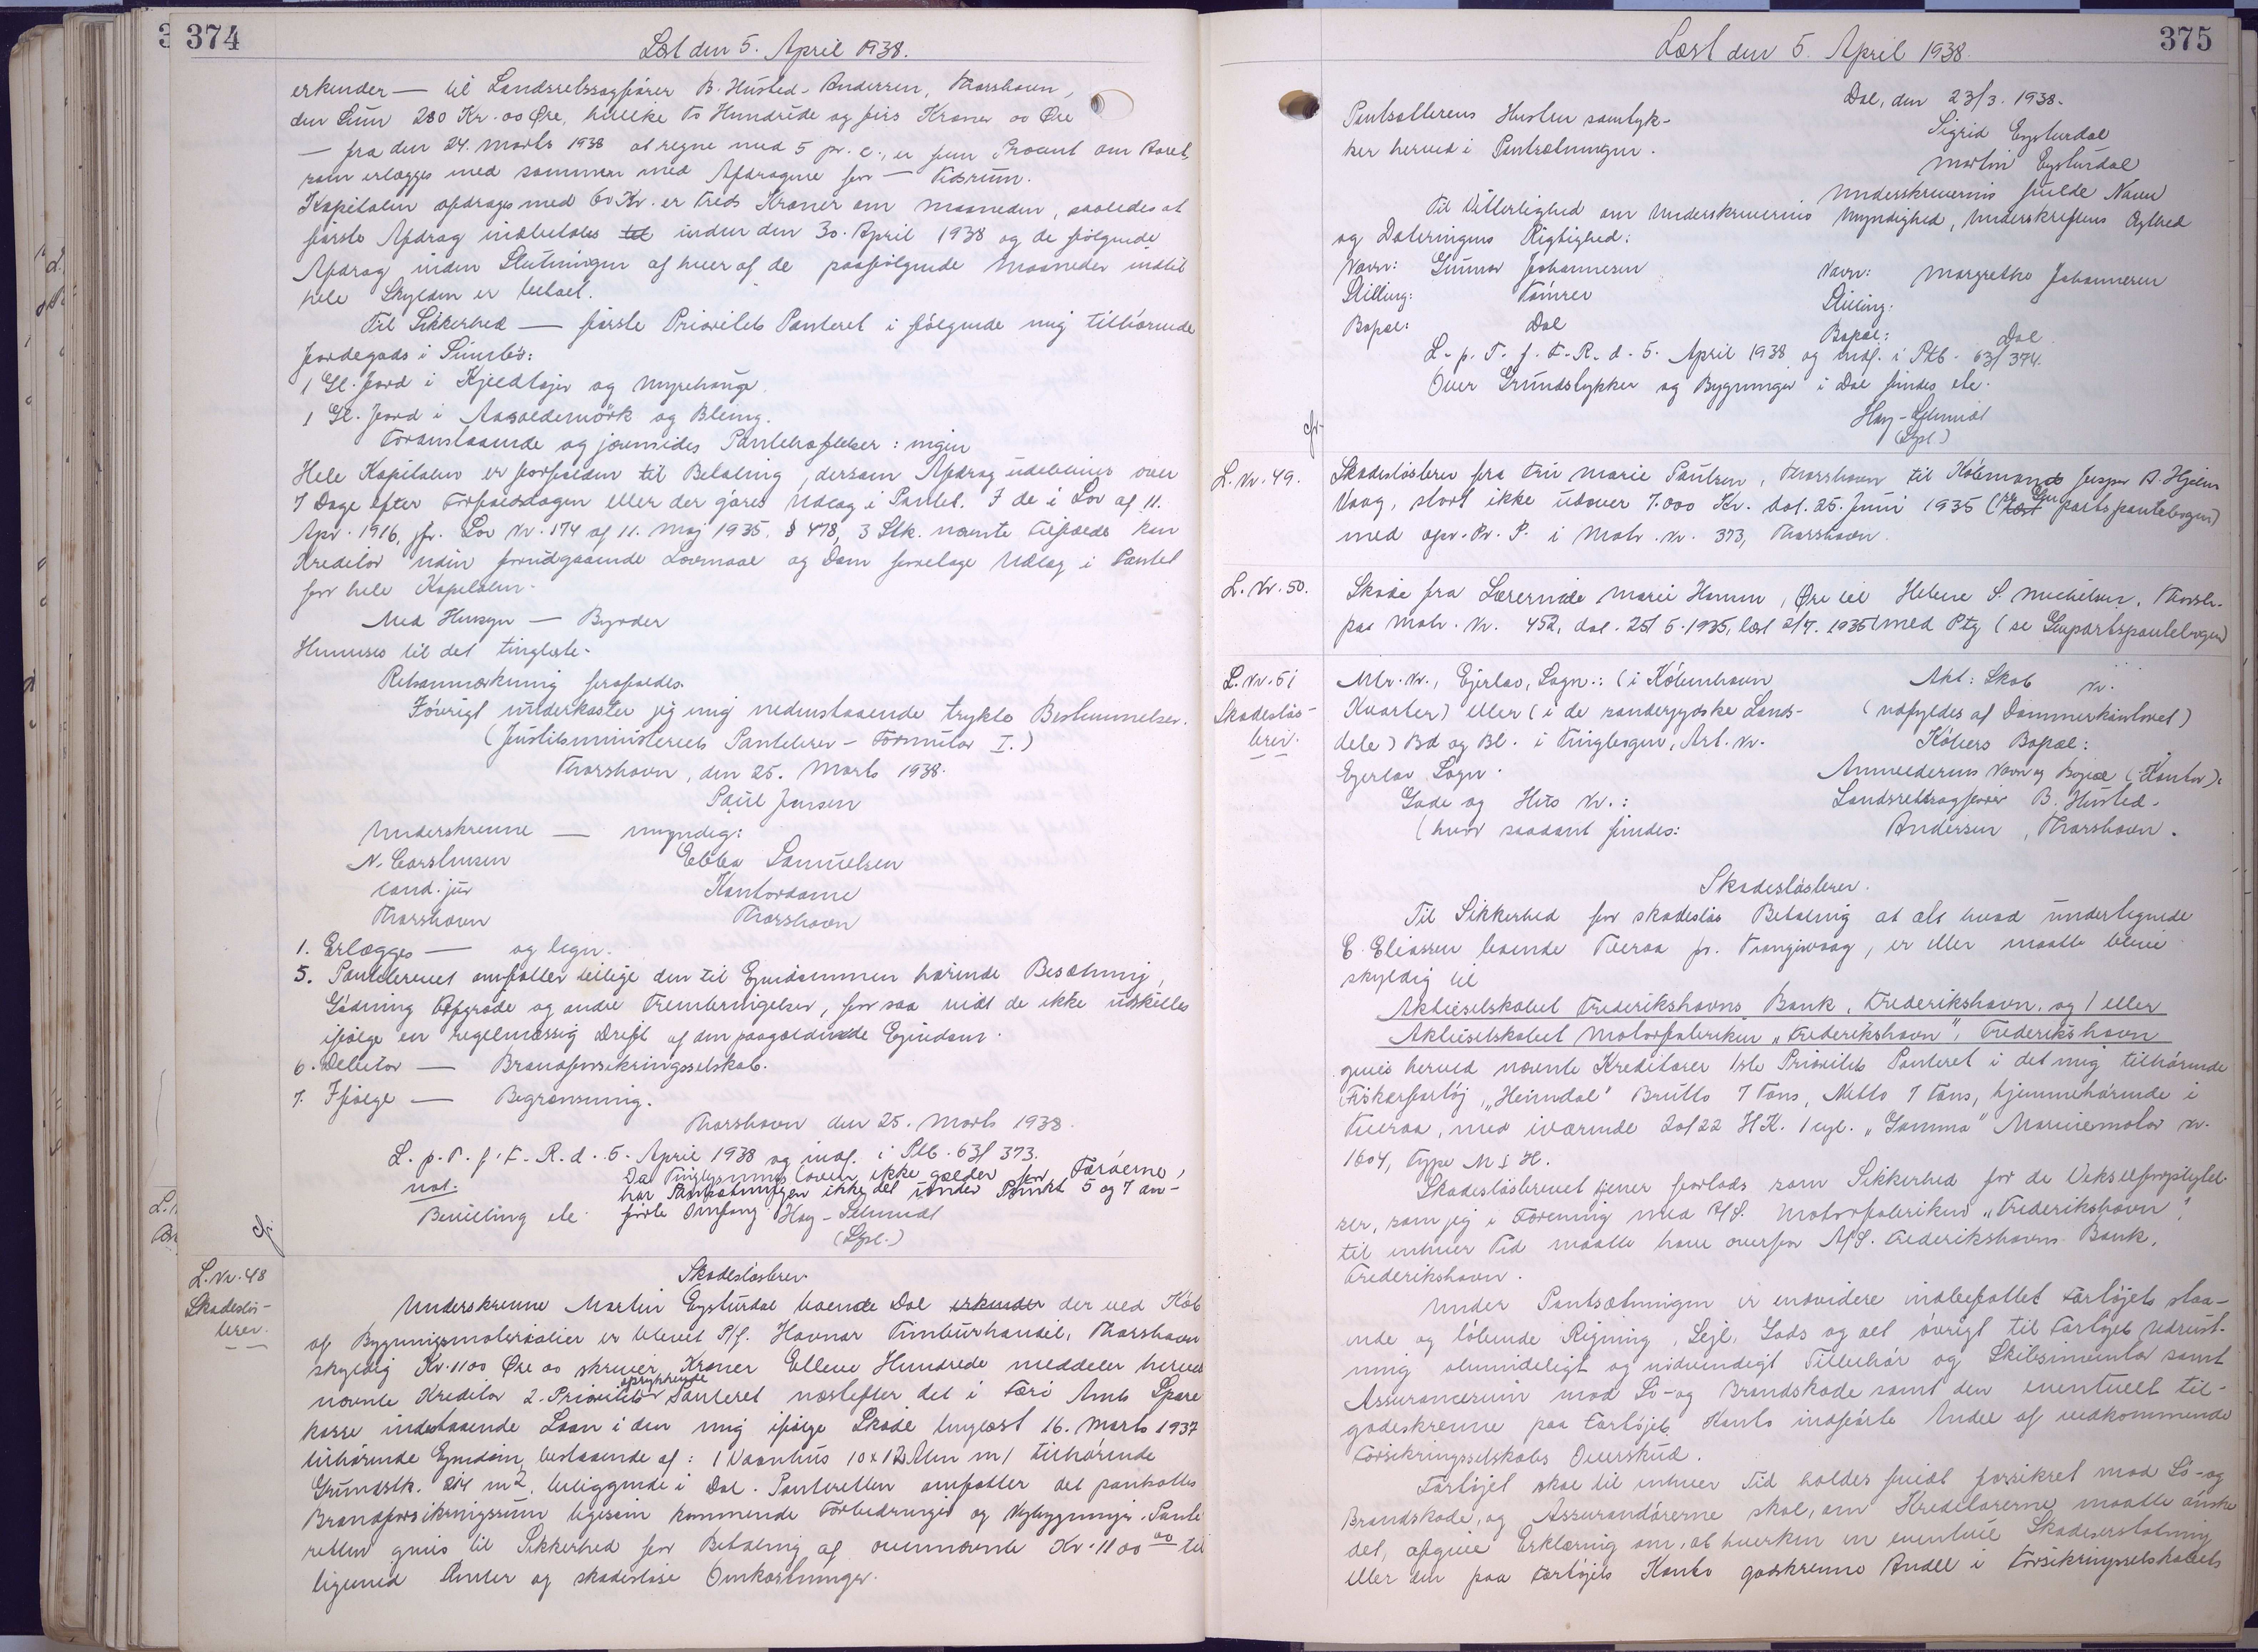 374
Læst den 5. April 1938.
erkender — til Landsretssagfører B. Husted-Andersen, Thorshavn,
den Sum 280 Kr. 00 Øre, hvilke to Hundrede og firs Kroner 00 Øre
— fra den 24. Marts 1938 at regne med 5 pr. c., er fem Procent om Aaret,
som erlægges med sammen med Afdragene for — Tidsrum.
Kapitalen afdrages med 60 Kr. er treds Kroner om Maaneden, saaledes at
første Afdrag indbetales til inden den 30. April 1938 og de følgende
Afdrag inden Slutningen af hver af de paafølgende Maaneder indtil
hele Skylden er betalt.
Til Sikkerhed — første Prioritets Panteret i følgende mig tilhørende
Jordegods i Sumbø:
1 Gl. Jord i Kjeldtøjer og Myrehauge.
1 Gl. Jord i Aasoldemörk og Bleing.
Foranstaaende og jævnsides Pantehæftelser: ingen
Hele Kapitalen er forfalden til Betaling, dersom Afdrag udebliver over
7 Dage efter Forfaldsdagen eller der gøres Udlæg i Pantet. I de i Lov af 11.
Apr. 1916, jfr. Lov Nr. 174 af 11. Maj 1935. § 478, 3 Stk. nævnte Tilfælde kan
Kreditor uden forudgaaende Lovmaal og Dom foretage Udlæg i Pantet
for hele Kapitalen.
Med Hensyn — Byrder
Henvises til det tinglæste.
Retsanmærkning frafaldes.
Iøvrigt underkaster jeg mig nedenstaaende trykte Bestemmelser.
(Justitsministeriets Pantebrev - Formular I.)
Thorshavn, den 25. Marts 1938.
Paul Jensen
Underskrevne — myndig:
N. Carstensen Ebba Samuelsen
cand. jur Kontordame
Thorshavn Thorshavn
1. Erlægges — og lign.
5. Pantebrevet omfatter tillige den til Ejendommen hørende Besætning,
Gødning Afgrøde og andre Frembringelser, for saa vidt de ikke udskilles
ifølge en regelmæssig Drift af den paagældende Ejendom.
6. Debitor — Brandforsikringsselskab.
7. Ifølge — Begrænsning.
Thorshavn den 25. Marts 1938.
L. p. T. f. F. R. d. 5. April 1938 og indf. i Ptb. 63/373.
not: Da Tinglysningsloven ikke gælder for Færøerne,
har Pantsætningen ikke det under Punkt 5 og 7 an-
Bevilling etc. førte Omfang. Hay-Schmidt
(Spl.)
cfr.
L. Nr. 48
Skadesløs-
brev.
Skadesløsbrev
Underskrevne Martin Eysturdal boende Dal erkender der ved Køb
af Bygningsmaterialier er blevet P/f. Havnar Timburhandil, Thorshavn
skyldig Kr. 1100 Øre 00 skriver Kroner Elleve Hundrede meddeler herved
oprykkende
nævnte Kreditor 2. Prioritets Panteret næstefter det i Færø Amts Spare
kasse indestaaende Laan i den mig ifølge Skøde tinglæst 16. Marts 1937
tilhørende Ejendom, bestaaende af: 1 Vaanhus 10 x 12 Alen m/ tilhørende
Grundstk. 214 m2, beliggende i Dal. Panteretten omfatter det panthafte
Brandforsikringssum ligesom kommende Forbedringer og Nybygninger. Pante
retten gives til Sikkerhed for Betaling af ovennævnte Kr. 1100 00 til
ligemed Renter og skadesløse Omkostninger.
375
Læst den 5. April 1938.
Dal, den 23/3. 1938.
Pantsætterens Hustru samtyk- Sigrid Eysturdal
ker herved i Pantsætningen. Martin Eysturdal
Underskrivernes fulde Navn
Til Vitterlighed om Underskrivernes Myndighed, Underskriftens Ægthed
og Dateringens Rigtighed:
Navn: Gunnar Johannesen Navn: Margretha Johannesen
Stilling: Tømrer Stilling:
Bopæl: Dal Bopæl: Dal
L. p. T. f. F. R. d. 5. April 1938 og indf. i Ptb. 63/374.
Over Grundstykker og Bygninger i Dal findes etc.
Hay-Schmidt
(Spl.)
cfr.
L. Nr. 49. Skadesløsbrev fra Fru Marie Paulsen, Thorshavn til Købmand Jesper A. Hjelm
Vaag, stort ikke udover 7.000 Kr. dat. 25. Juni 1935 (læst se Gen partspantebogen)
med opr. Pr. P. i Matr. Nr. 373, Thorshavn.
L. Nr. 50. Skøde fra Lærerinde Marie Hamm, Øre til Helene S. Michelsen, Thorsh.
paa Matr. Nr. 452, dat. 25/5. 1935, læst 2/7. 1935 med Ptg (se Genpartspantebogen)
L. Nr. 51
Skadesløs-
brev.
Mtr. Nr., Ejerlav, Sogn: (i København Akt: Skab Nr.
Kvarter) eller (i de sønderjydske Lands- (udfyldes af Dommerkontoret)
dele) Bd og Bl. i Tingbogen, Art. Nr. Købers Bopæl:
Ejerlav Sogn. Anmelderens Navn og Bopæl (Kontor):
Gade og Hus Nr.: Landsretssagfører B. Husted-
(hvor saadant findes: Andersen, Thorshavn.
Skadesløsbrev.
Til Sikkerhed for skadesløs Betaling at alt hvad undertegnede
E. Eliassen boende Tveraa pr. Trangisvaag, er eller maatte blive
skyldig til
Aktieselskabet Frederikshavns Bank, Frederikshavn, og/eller
Aktieselskabet Motorfabriken "Frederikshavn", Frederikshavn
gives herved nævnte Kreditorer 1ste Prioritets Panteret i det mig tilhørende
Fiskerfartøj, "Heimdal" Brutto 7 Tons, Netto 7 Tons, hjemmehørende i
Tveraa, med iværende 20/22 H.K. 1 cyl. "Gamma" Marinemotor Nr.
1604, Type M I H.
Skadesløsbrevet tjener forlods som Sikkerhed for de Vekselforpligtel-
ser, som jeg i Forening med A/S. Motorfabriken "Frederikshavn",
til enhver Tid maatte have overfor A/S. Frederikshavns Bank,
Frederikshavn.
Under Pantsætningen er endvidere indbefattet Fartøjets staa-
ende og løbende Rigning, Sejl, Gods og alt øvrigt til Fartøjets Udrust-
ning almindeligt og nødvendigt Tilbehør og Skibsinventar samt
Assurancesum mod Sø- og Brandskade samt den eventuelt til-
godeskrevne paa Fartøjets Konto indførte Andel af vedkommende
Forsikringsselskabs Overskud.
Fartøjet skal til enhver Tid holdes fuldt forsikret mod Sø- og
Brandskade, og Assurandørerne skal, om Kreditorerne maatte ønske
det, afgive Erklæring om, at hverken en eventuel Skadeserstatning
eller den paa Fartøjets Konto godskrevne Andel i Forsikringsselskabets